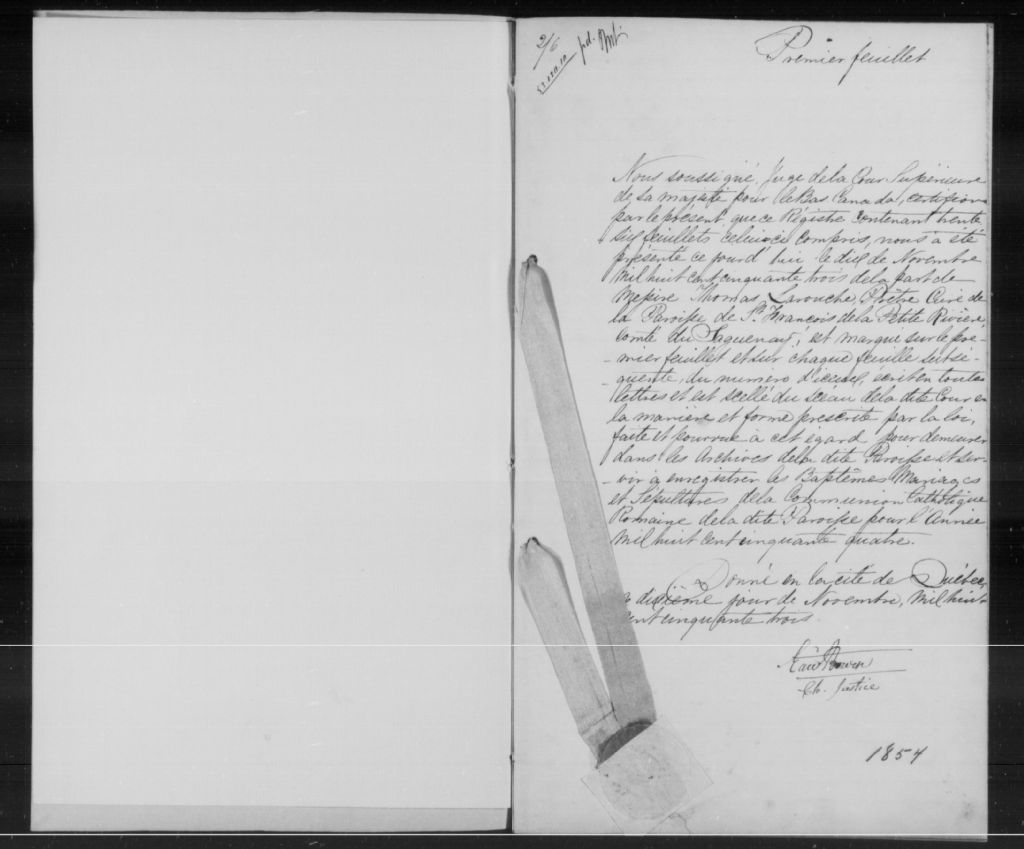 2/6
pd.
Premier feuillet
Nous soussigné, Juge de la Cour Supérieure
de sa majesté pour le Bas Canada, certifions
par le présent que ce Régistre contenant trente
six feuillets celui-ci compris, nous a été
présenté ce jourd'hui le dix de Novembre
Mil huit cent cinquante trois de la part de
Messire Thomas Larouche, Prêtre Curé de
la Paroisse de St. François de la Petite Rivière,
comté du Saguenay, est marqué sur le pre-
-mier feuillet et sur chaque feuille subsé-
-quente, du numéro d'iceux, écrit en toutes
lettres et est scellé du sceau de la dite Cour en
la manière et forme prescrite par la loi,
faite et pourvue à cet égard pour demeurer
dans les Archives de la dite Paroisse et ser-
-vir à enregistrer les Baptêmes Mariages
et Sépultures de la Communion Catholique
Romaine de la dite Paroisse pour l'Année
Mil huit cent cinquante quatre.
Donné en la cité de Québec,
dixième jour de Novembre, Mil huit
cent cinquante trois.
Edwd Bowen
Ch. Justice
1854